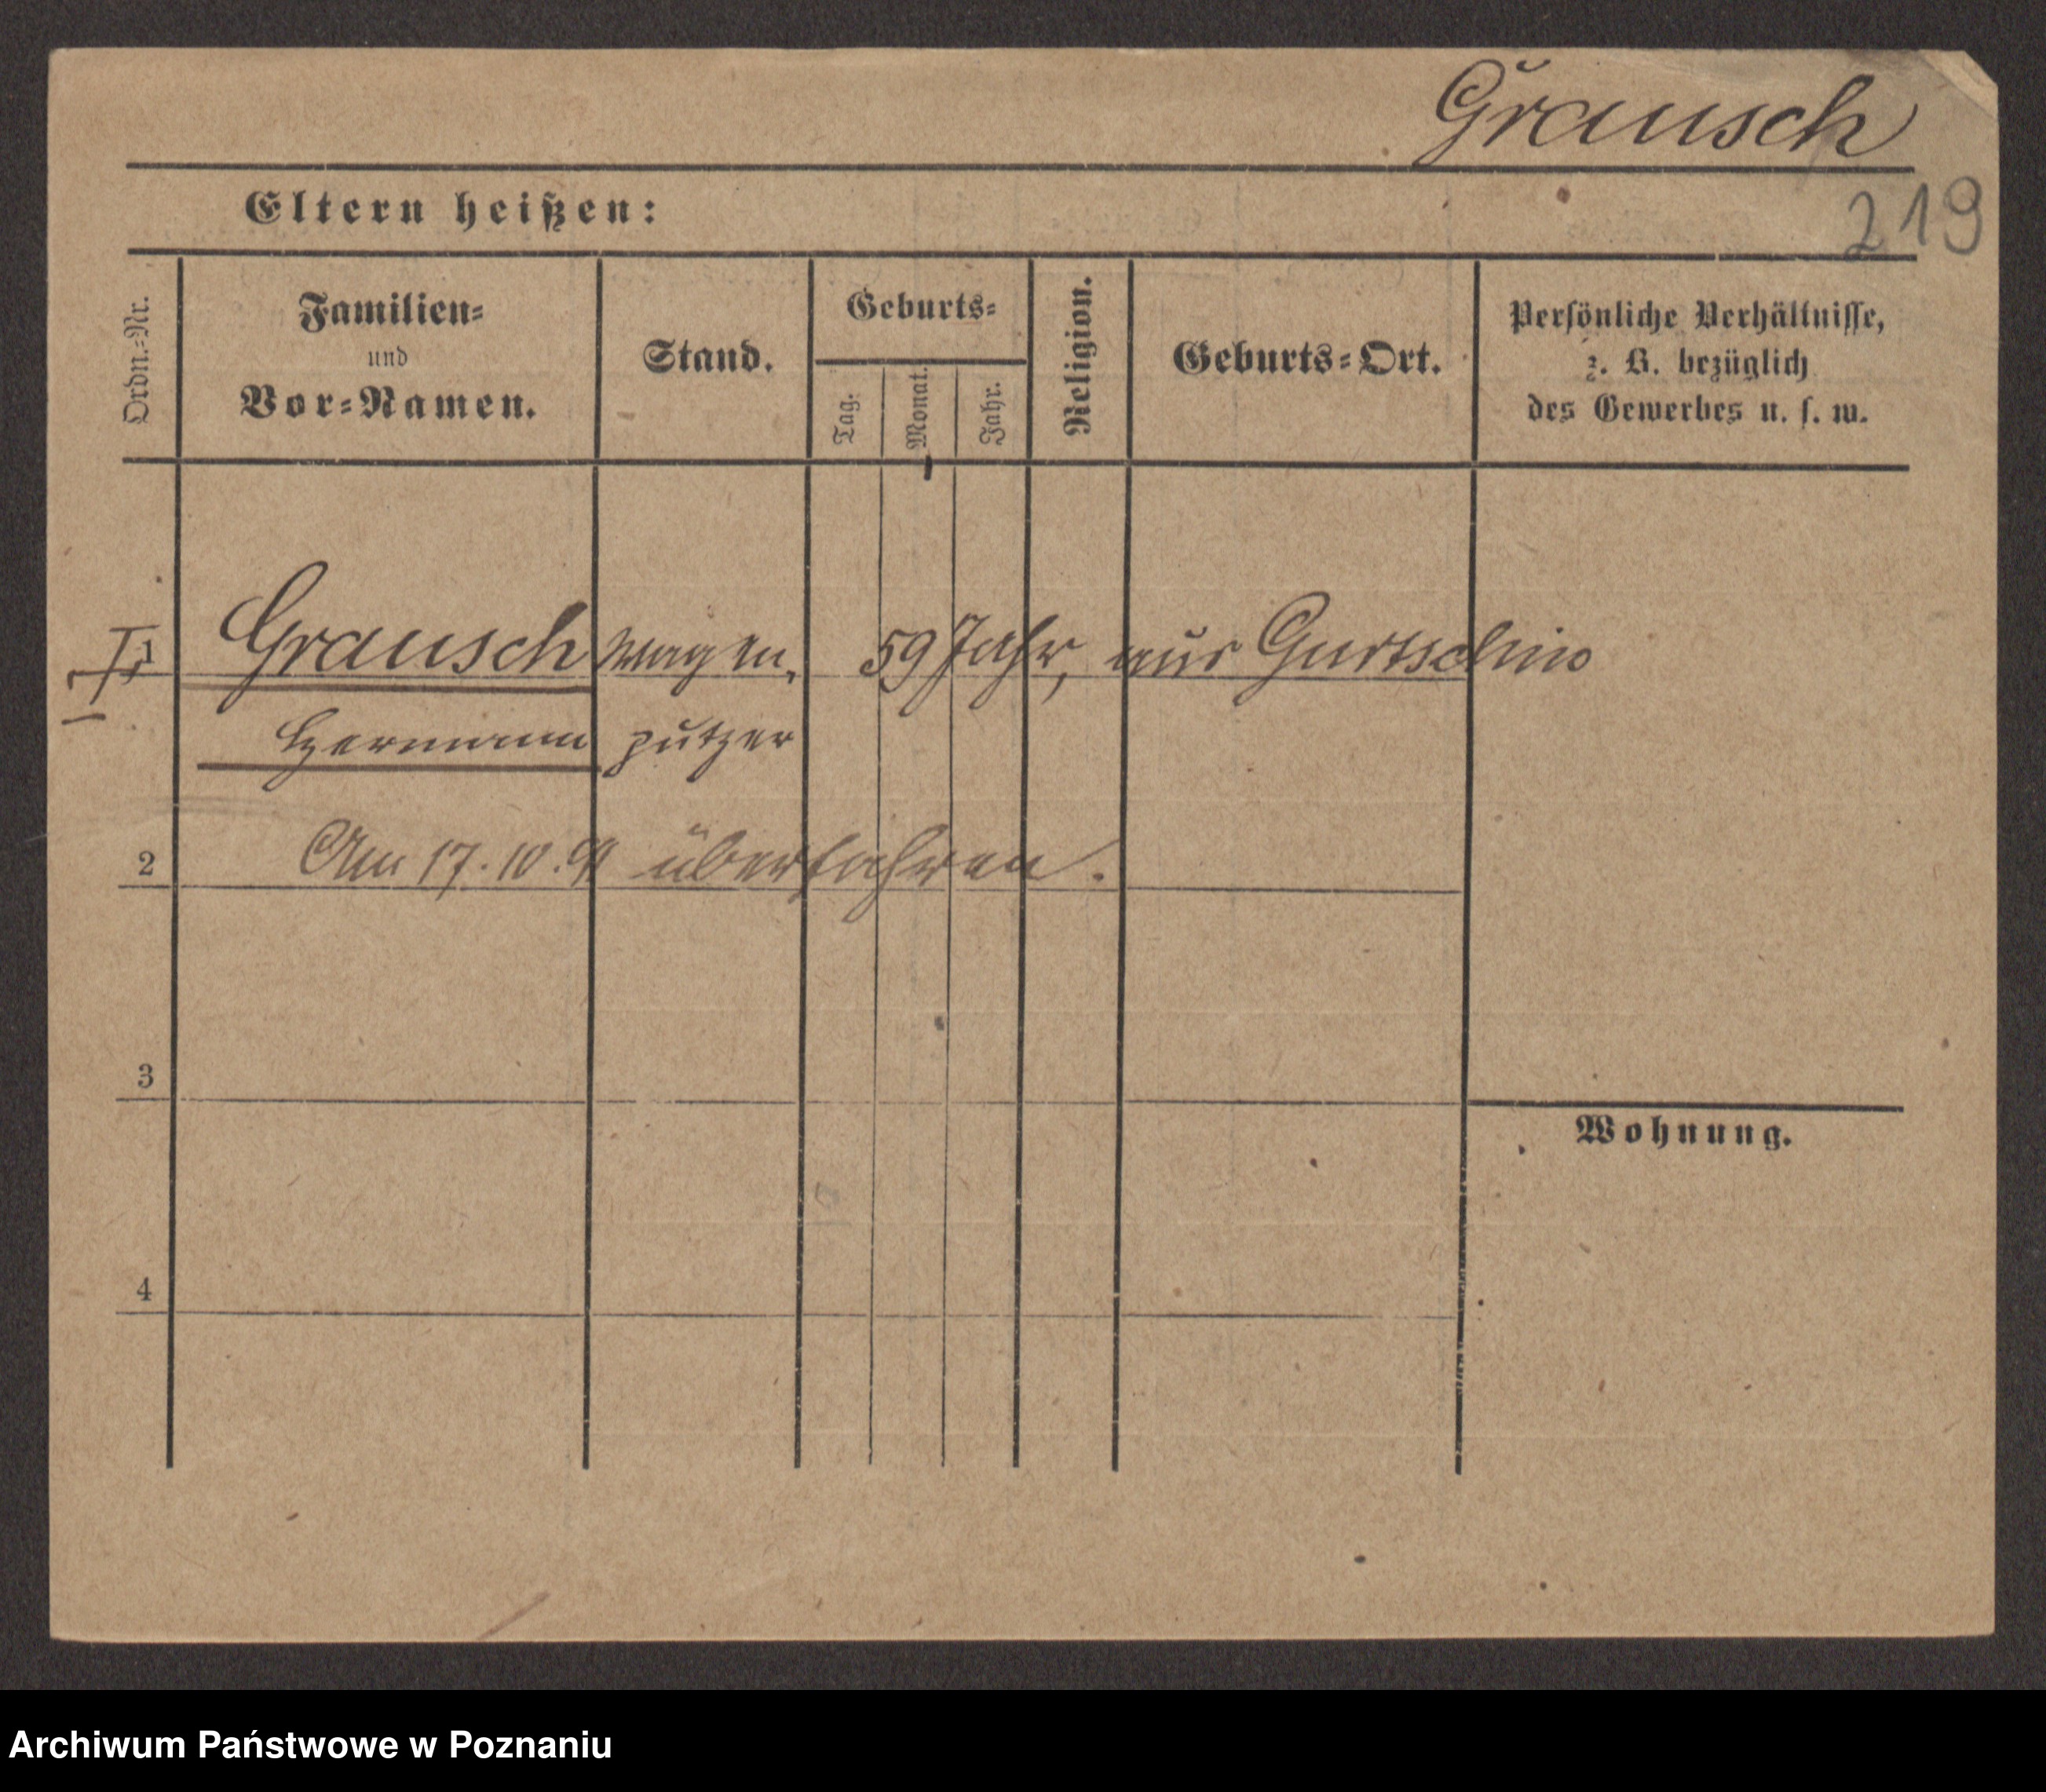 Grausch
219
Eltern heißen:
Ordn.=Nr.
Familien=
und
Vor=Namen.
Stand.
Geburts=
Tag.
Monat.
Jahr.
Religion.
Geburts=Ort.
Persönliche Verhältnisse,
z. B. bezüglich
des Gewerbes u. s. w.
1 Grausch Wagen, 59 Jahr, aus Gurtschin
Hermann putzer
2 Am 17.10.91 überfahren.
3
Wohnung.
4
Archiwum Państwowe w Poznaniu